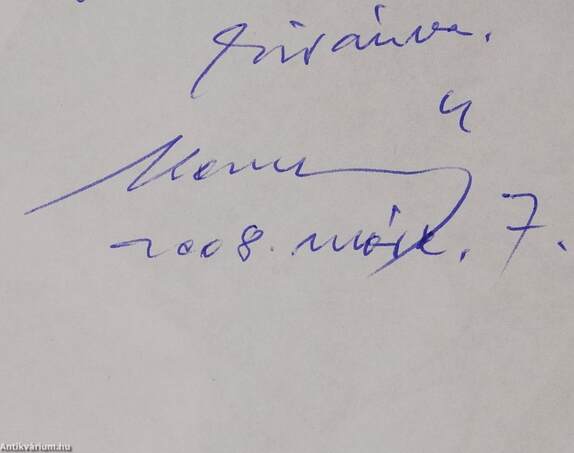 kívánva.
2008. márc. 7.
Antikvárium.hu